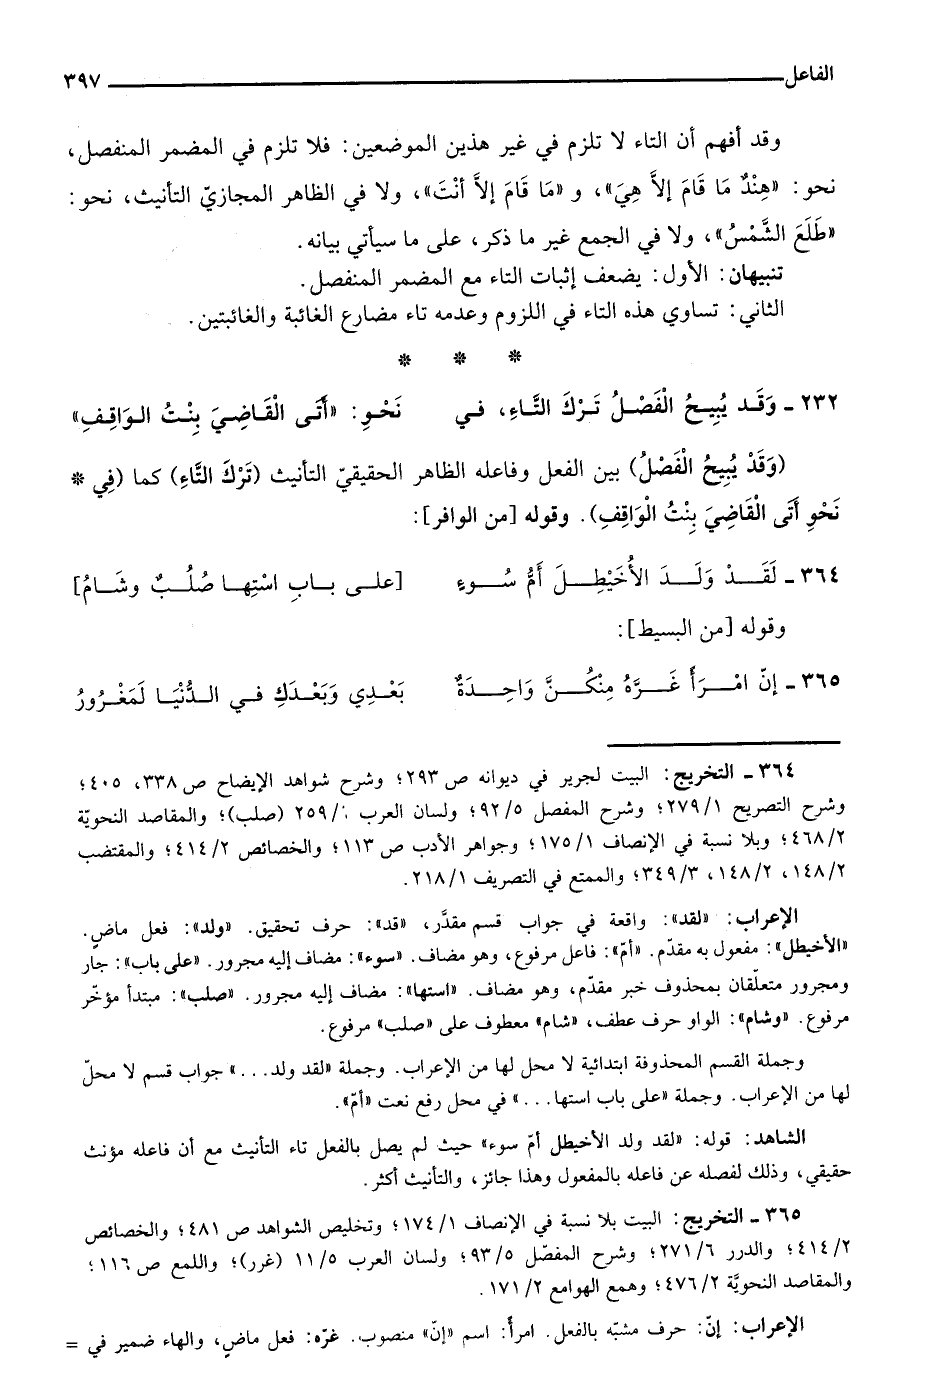 الفاعل ٣٩٧
وقد أفهم أن التاء لا تلزم في غير هذين الموضعين: فلا تلزم في المضمر المنفصل،
نحو: «هِنْدٌ مَا قَامَ إلاَّ هِيَ»، و «مَا قَامَ إلاَّ أنْتَ»، ولا في الظاهر المجازيّ التأنيث، نحو:
«طَلَعَ الشَّمْسُ»، ولا في الجمع غير ما ذكر، على ما سيأتي بيانه.
تنبيهان: الأول: يضعف إثبات التاء مع المضمر المنفصل.
الثاني: تساوي هذه التاء في اللزوم وعدمه تاء مضارع الغائبة والغائبتين.
* * *
٢٣٢ - وَقَـد يُبِيـحُ الْفَصْـلُ تَـرْكَ التَّـاءِ، فـي نَحْـوِ: «أَتَى الْقَـاضِـيَ بِنْـتُ الـوَاقِـفِ»
(وَقَدْ يُبِيحُ الْفَصْلُ) بين الفعل وفاعله الظاهر الحقيقيّ التأنيث (تَرْكَ التَّاءِ) كما (فِي *
نَحْوِ أَتَى الْقَاضِيَ بِنْتُ الْوَاقِفِ). وقوله [من الوافر]:
٣٦٤ - لَقَـــدْ وَلَـــدَ الأُخَيْطِـــلَ أُمُّ سُـــوءٍ [علـى بـابِ اسْتِهـا صُلُـبٌ وشَـامُ]
وقوله [من البسيط]:
٣٦٥ - إنّ امْـــرَأً غَـــرَّهُ مِنْكُـــنَّ وَاحِـــدَةٌ بَعْـدِي وَبَعْـدَكِ فـي الـدُّنْيَـا لَمَغْـرُورُ
٣٦٤ - التخريج: البيت لجرير في ديوانه ص ٢٩٣؛ وشرح شواهد الإيضاح ص ٣٣٨، ٤٠٥؛
وشرح التصريح ١/ ٢٧٩؛ وشرح المفصل ٥/ ٩٢؛ ولسان العرب /٢٥٩ (صلب)؛ والمقاصد النحويّة
٢/ ٤٦٨؛ وبلا نسبة في الإنصاف ١/ ١٧٥؛ وجواهر الأدب ص ١١٣؛ والخصائص ٢/ ٤١٤؛ والمقتضب
٢/ ١٤٨، ٢/ ١٤٨، ٣/ ٣٤٩؛ والممتع في التصريف ١/ ٢١٨.
الإعراب: «لقد»: واقعة في جواب قسم مقدَّر، «قد»: حرف تحقيق. «ولد»: فعل ماضٍ.
«الأخيطل»: مفعول به مقدّم. «أمّ»: فاعل مرفوع، وهو مضاف. «سوء»: مضاف إليه مجرور. «على باب»: جار
ومجرور متعلّقان بمحذوف خبر مقدّم، وهو مضاف. «استها»: مضاف إليه مجرور. «صلب»: مبتدأ مؤخّر
مرفوع. «وشام»: الواو حرف عطف، «شام» معطوف على «صلب» مرفوع.
وجملة القسم المحذوفة ابتدائية لا محل لها من الإعراب. وجملة «لقد ولد...» جواب قسم لا محلّ
لها من الإعراب. وجملة «على باب استها...» في محل رفع نعت «أمّ».
الشاهد: قوله: «لقد ولد الأخيطل أمّ سوء» حيث لم يصل بالفعل تاء التأنيث مع أن فاعله مؤنث
حقيقي، وذلك لفصله عن فاعله بالمفعول وهذا جائز، والتأنيث أكثر.
٣٦٥ - التخريج: البيت بلا نسبة في الإنصاف ١/ ١٧٤؛ وتخليص الشواهد ص ٤٨١؛ والخصائص
٢/ ٤١٤؛ والدرر ٦/ ٢٧١؛ وشرح المفصّل ٥/ ٩٣؛ ولسان العرب ٥/ ١١ (غرر)؛ واللمع ص ١١٦؛
والمقاصد النحويَّة ٢/ ٤٧٦؛ وهمع الهوامع ٢/ ١٧١.
الإعراب: إنّ: حرف مشبّه بالفعل. امرأً: اسم «إنّ» منصوب. غرّه: فعل ماضٍ، والهاء ضمير في =